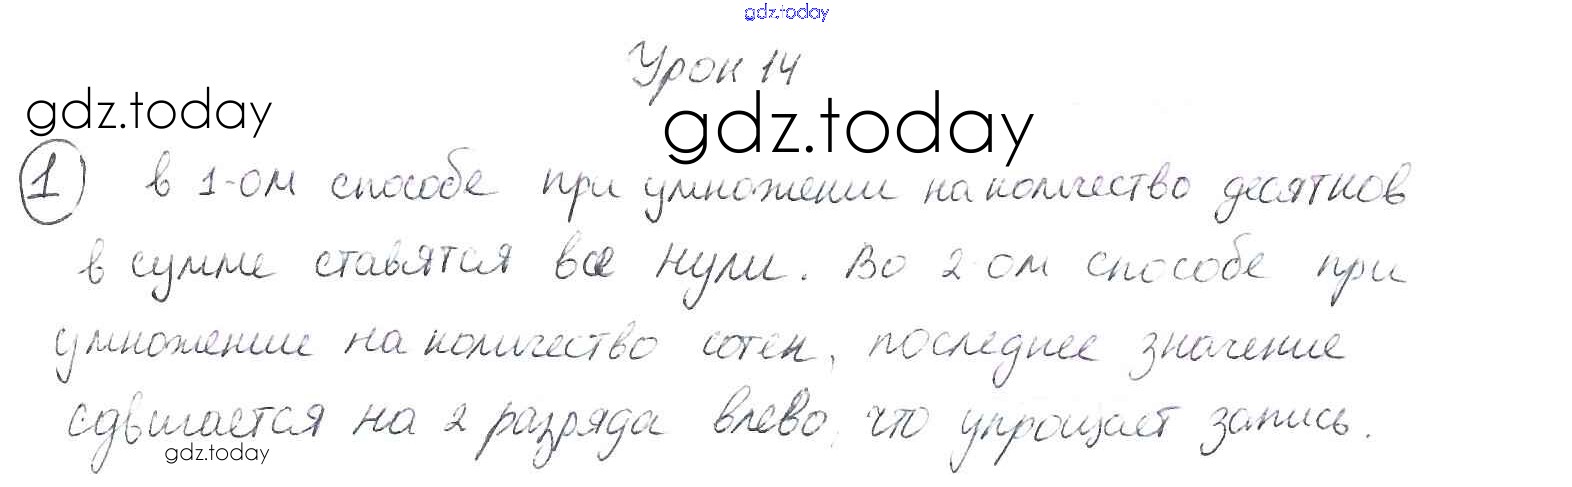 gdz.today
Урок 14
gdz.today
gdz.today
1 в 1-ом способе при умножении на количество десятков
в сумме ставятся все нули. Во 2-ом способе при
умножение на количество сотен, последнее значение
сдвигается на 2 разряда влево, что упрощает запись.
gdz.today